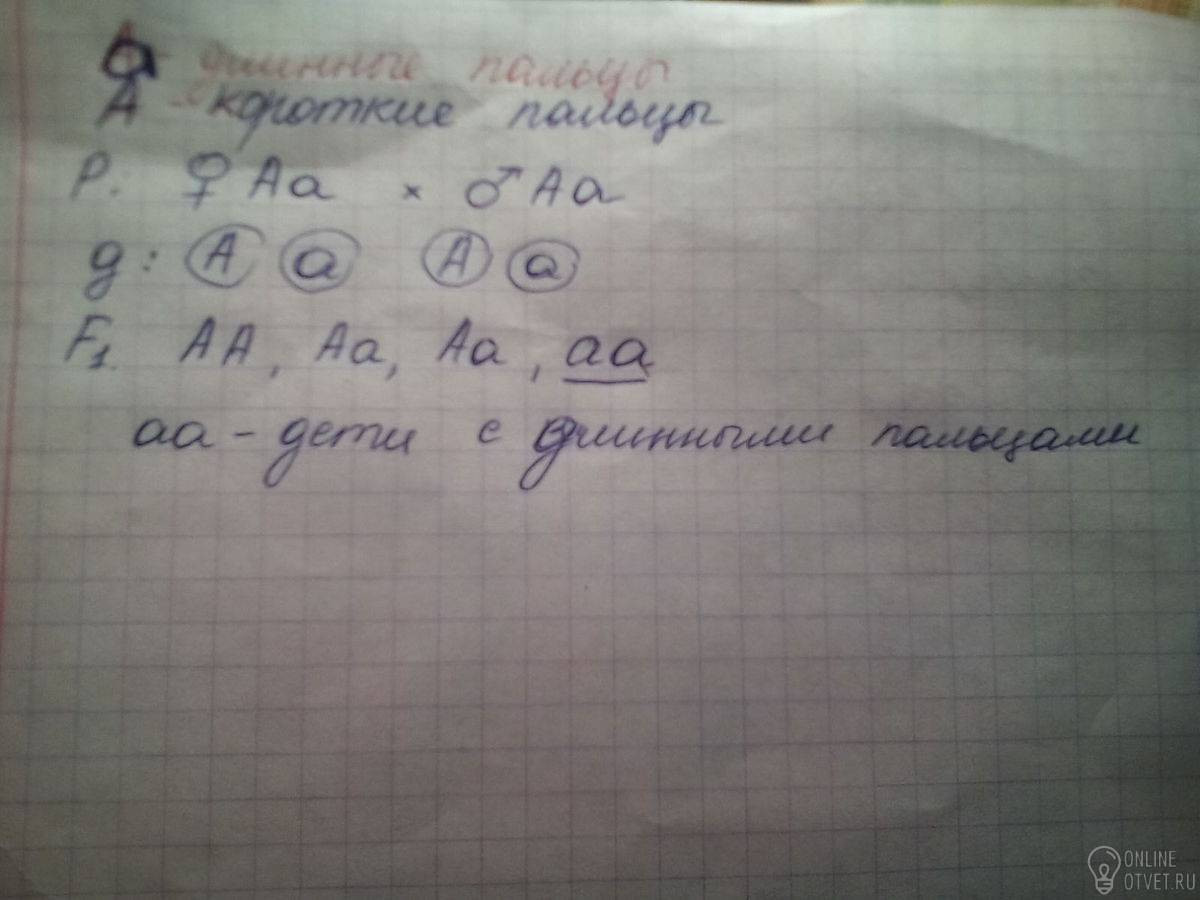 а - длинные пальцы
А - короткие пальцы
P: ♀ Aa × ♂ Aa
g: A a A a
F1. AA, Aa, Aa, aa
aa - дети с длинными пальцами
ONLINE
OTVET.RU